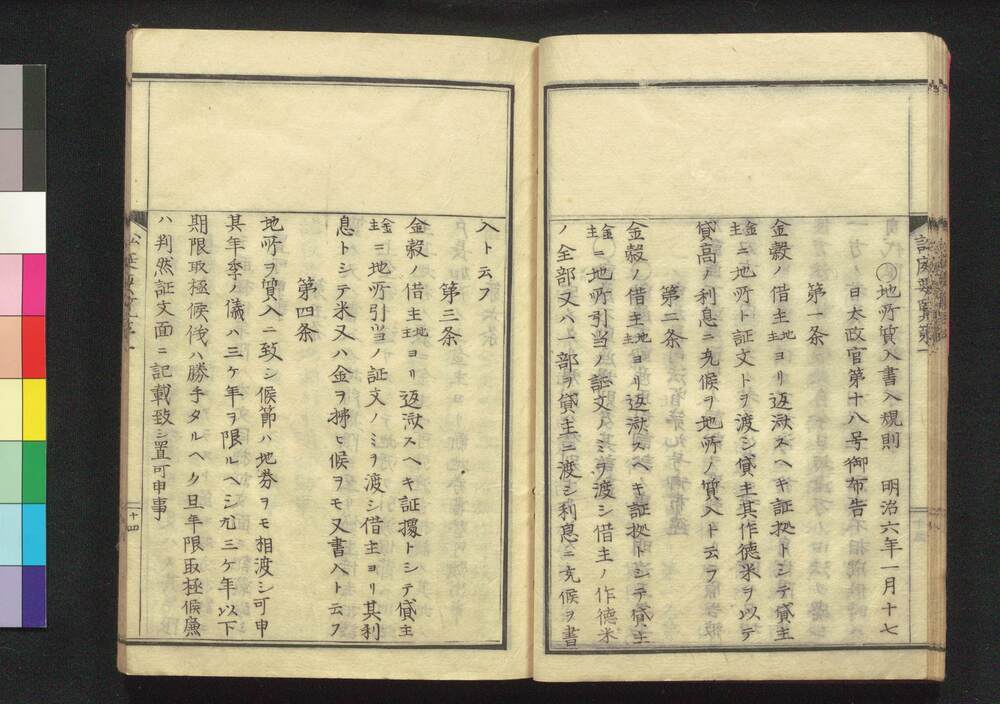 〇地所質入書入規則 明治六年一月十七
日太政官第十八号御布告
第一条
金穀ノ借主地主ヨリ返済スヘキ証拠トシテ貸主
金主ニ地所ト証文トヲ渡シ貸主其作徳米ヲ以テ
貸高ノ利息ニ充候ヲ地所ノ質入ト云フ
第二条
金穀ノ借主地主ヨリ返済スヘキ証拠トシテ貸主
金主ニ地所引当ノ証文ノミヲ渡シ借主ノ作徳米
ノ全部又ハ一部ヲ貸主ニ渡シ利息ニ充候ヲ書
入ト云フ
第三条
金穀ノ借主地主ヨリ返済スヘキ証拠トシテ貸主
金主ニ地所引当ノ証文ノミヲ渡シ借主ヨリ其利
息トシテ米又ハ金ヲ拂ヒ候ヲモ又書入ト云フ
第四条
地所ヲ質入ニ致シ候節ハ地券ヲモ相渡シ可申
其年季ノ儀ハ三ケ年ヲ限ルヘシ尤三ケ年以下
期限取極候儀ハ勝手タルヘク且年限取極候廉
ハ判然証文面ニ記載致シ置可申事
十四